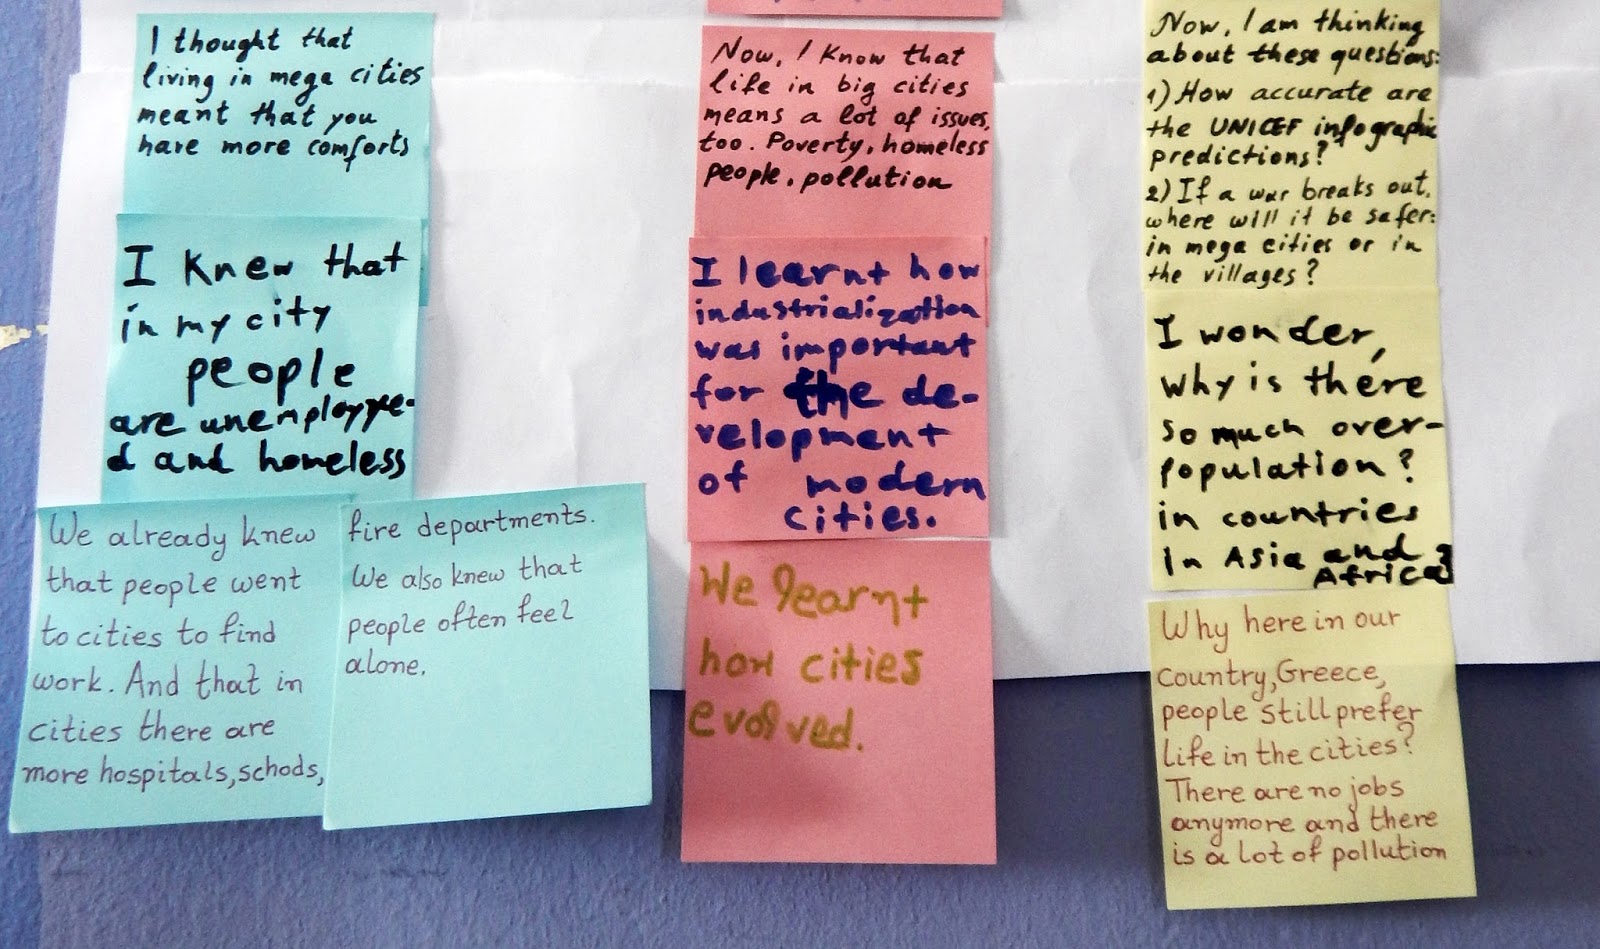 I thought that
living in mega cities
meant that you
have more comforts
I knew that
in my city
people
are unemployye-
d and homeless
We already knew
that people went
to cities to find
work. And that in
cities there are
more hospitals, schools,
fire departments.
We also knew that
people often feel
alone.
Now, I know that
life in big cities
means a lot of issues,
too. Poverty, homeless
people, pollution
I learnt how
industrialization
was important
for the de-
velopment
of modern
cities.
We learnt
how cities
evolved.
Now, I am thinking
about these questions:
1) How accurate are
the UNICEF infographic
predictions?
2) If a war breaks out,
where will it be safer:
in mega cities or in
the villages?
I wonder,
why is there
so much over-
population?
in countries
in Asia and
Africa?
Why here in our
country, Greece,
people still prefer
life in the cities?
There are no jobs
anymore and there
is a lot of pollution